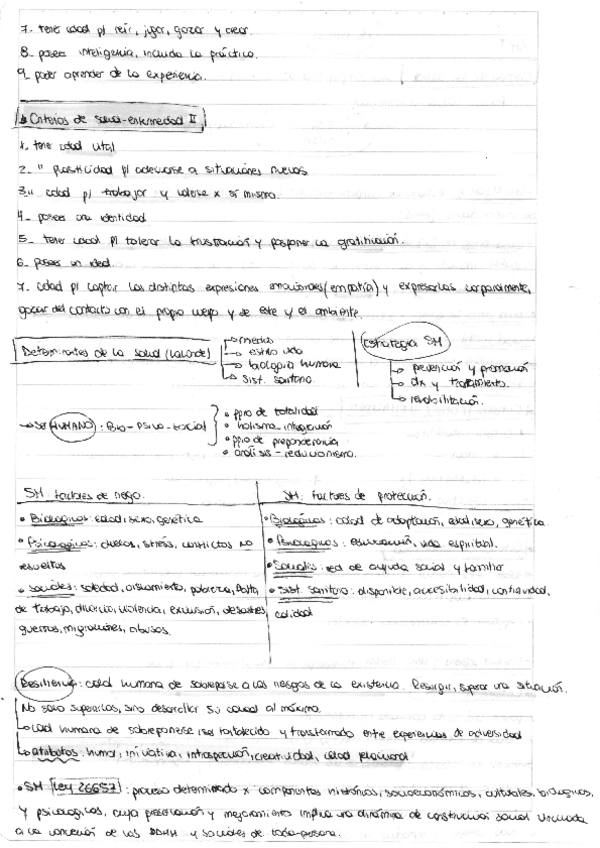 7. tener cdad p/ reír, jugar, gozar y crear.
8. poseer inteligencia, incluida la práctica.
9. poder aprender de la experiencia.
Criterios de salud-enfermedad II
1. tener cdad vital
2. " plasticidad p/ adecuarse a situaciones nuevas
3. " cdad p/ trabajar y valerse x sí mismo.
4. poseer una identidad
5. tener cdad p/ tolerar la frustración y posponer la gratificación.
6. poseer un ideal.
7. cdad p/ captar las distintas expresiones emocionales (empatía) y expresarlas corporalmente,
gozar del contacto con el propio cuerpo y de este y el ambiente.
Determinantes de la salud (Lalonde)
medio
estilo vida
biología humana
sist. sanitario.
Estrategia SM
prevención y promoción
dx y tratamiento.
rehabilitación.
SER HUMANO: Bio-psico-social
• ppio de totalidad
• holismo-integración
• ppio de preponderancia
• análisis-reduccionismo.
SM factores de riesgo.
• Biológicos: edad, sexo, genética
• Psicológicos: duelos, stress, conflictos no
resueltos
• Sociales: soledad, aislamiento, pobreza, falta
de trabajo, divorcio, violencia, exclusión, desastres
guerras, migraciones, abusos.
SM. factores de protección.
• Biológicos: cdad de adaptación, edad, sexo, genética
• Psicológicos: educación, vida espiritual.
• Sociales: red de ayuda social y familiar
• Sist. sanitario: disponible, accesibilidad, continuidad,
calidad
Resiliencia: cdad humana de sobreponerse a los riesgos de la existencia. Resurgir, superar una situación.
No solo superarlos, sino desarrollar su caudal al máximo.
cdad humana de sobreponerse ser fortalecido y transformado entre experiencias de adversidad
atributos: humor, iniciativa, introspección, creatividad, cdad relacional
• SM Ley 26657: proceso determinado x componentes históricos, socioeconómicos, culturales, biológicos,
y psicológicos, cuya preservación y mejoramiento implica una dinámica de construcción social vinculada
a la concreción de los DDHH y sociales de toda persona.